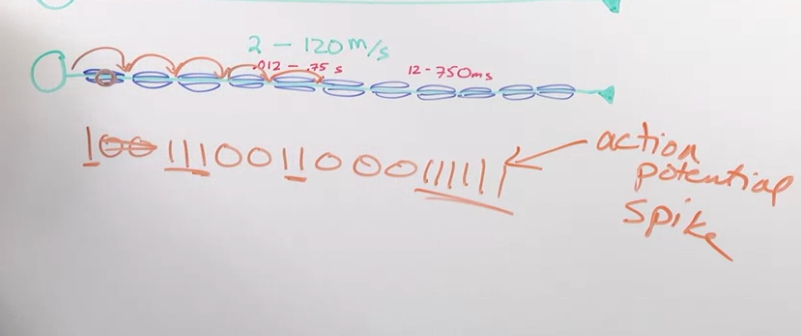 2 - 120m/s
.012 - .75 s
12-750ms
100111001100011111
action
potential
spike